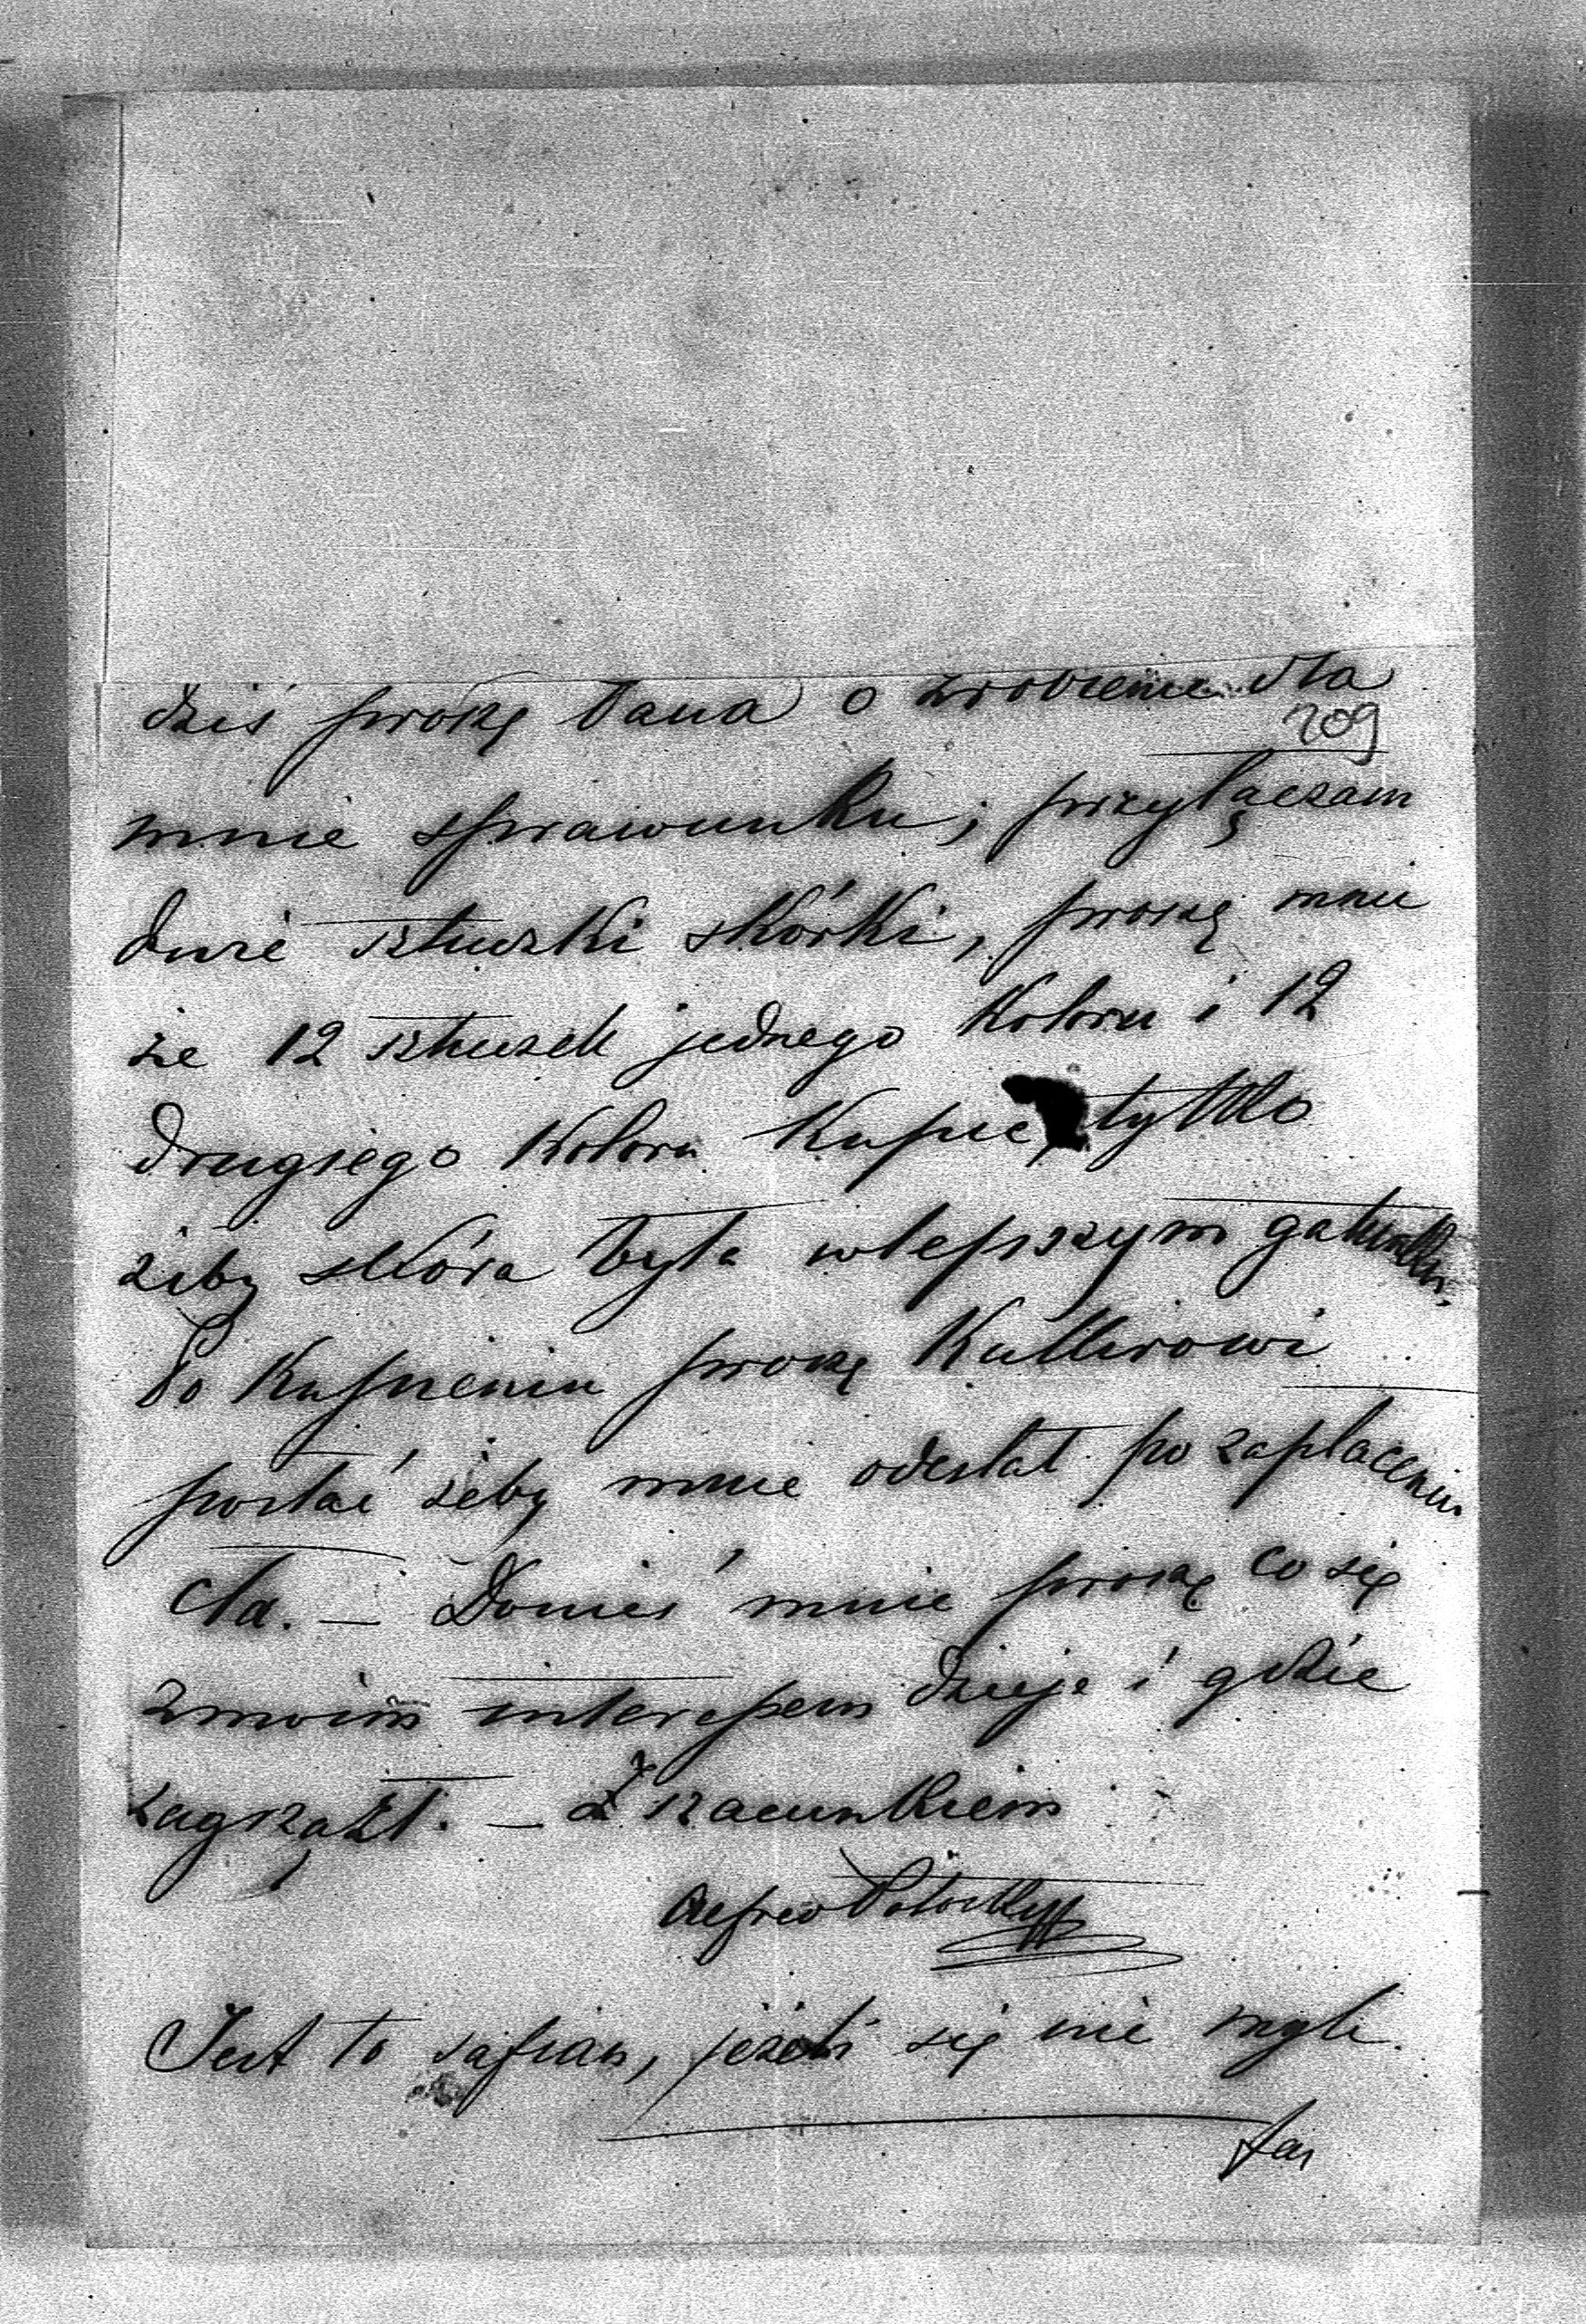 dziś proszę Pana o zrobienie dla
209
mnie sprawunku; przyłączam
dwie sztuczki skórki, proszę mnie
że 12 sztuczek jednego koloru i 12
drugiego koloru kupić, tylko
żeby skóra była wlepszym gatunku.
Po kupieniu proszę Kullerowi
posłać żeby mnie odesłał po zapłaceniu
cła. — Donieś mnie proszę co się
zmoim interessem dzieje i gdzie
zagrzązł. — Z szacunkiem
Alfred Potocky
Jest to safian, jeżeli się nie mylę.